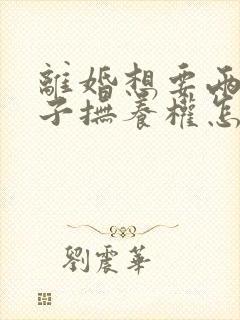 離婚想要兩
子撫養權怎
劉震華